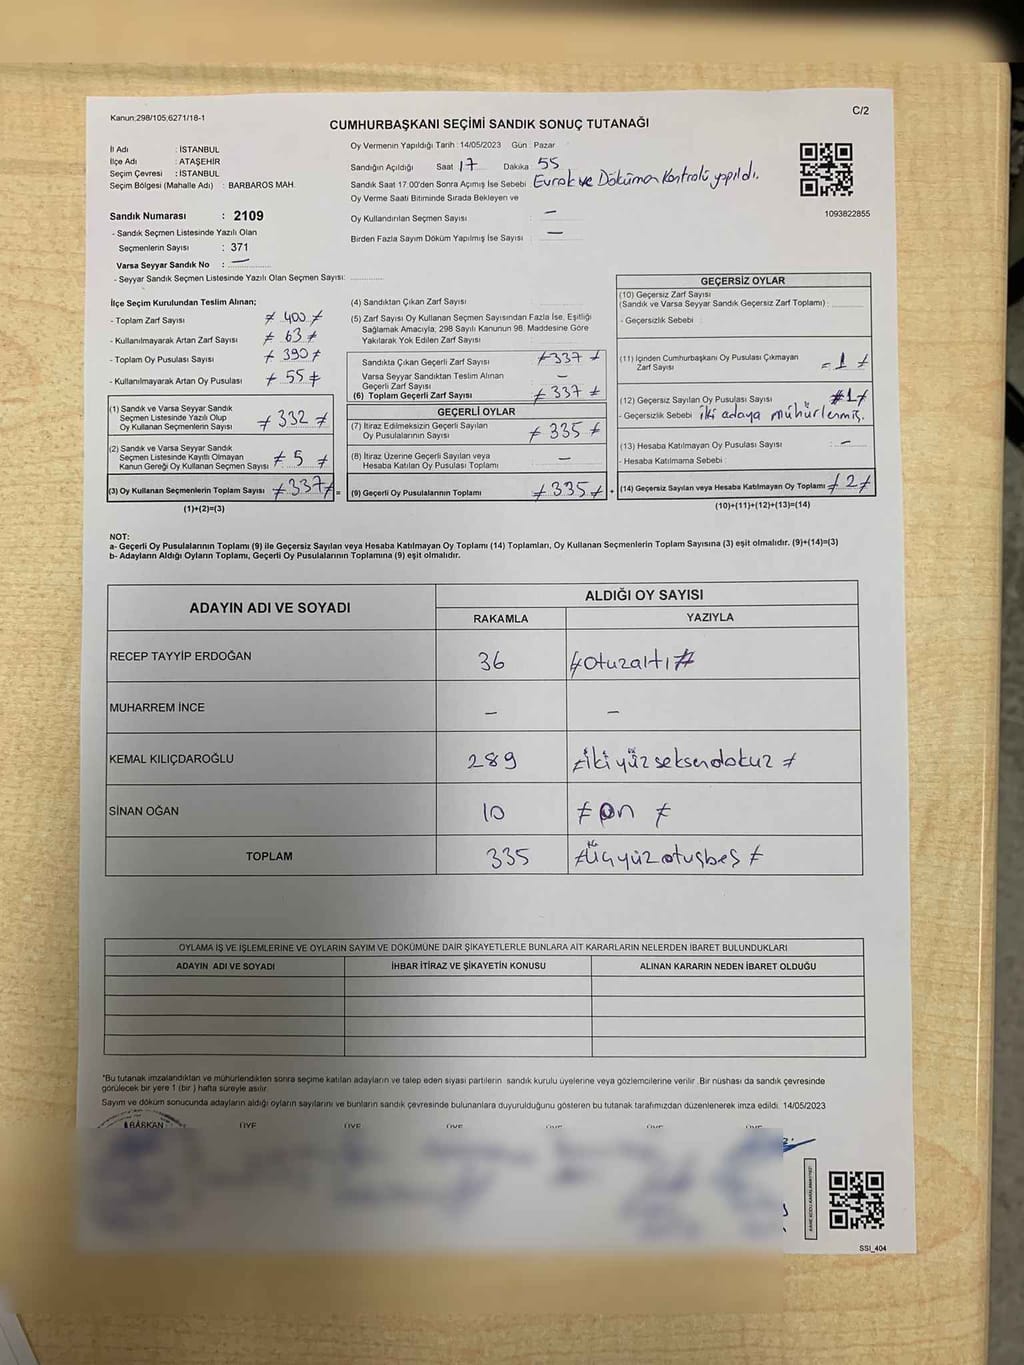 Kanun:298/105,6271/18-1
C/2
CUMHURBAŞKANI SEÇİMİ SANDIK SONUÇ TUTANAĞI
İl Adı : İSTANBUL
İlçe Adı : ATAŞEHİR
Seçim Çevresi : İSTANBUL
Seçim Bölgesi (Mahalle Adı) : BARBAROS MAH.
Oy Vermenin Yapıldığı Tarih : 14/05/2023 Gün : Pazar
Sandığın Açıldığı Saat 17 Dakika : 55
Sandık Saat 17.00'den Sonra Açımış İse Sebebi : Evrak ve Döküman Kontrolü yapıldı.
Oy Verme Saati Bitiminde Sırada Bekleyen ve
Oy Kullandırılan Seçmen Sayısı —
Birden Fazla Sayım Döküm Yapılmış İse Sayısı —
1093822855
Sandık Numarası : 2109
- Sandık Seçmen Listesinde Yazılı Olan
Seçmenlerin Sayısı : 371
Varsa Seyyar Sandık No : —
- Seyyar Sandık Seçmen Listesinde Yazılı Olan Seçmen Sayısı: ............
İlçe Seçim Kurulundan Teslim Alınan;
- Toplam Zarf Sayısı ≠ 400 ≠
- Kullanılmayarak Artan Zarf Sayısı ≠ 63 ≠
- Toplam Oy Pusulası Sayısı ≠ 390 ≠
- Kullanılmayarak Artan Oy Pusulası ≠ 55 ≠
(1) Sandık ve Varsa Seyyar Sandık
Seçmen Listesinde Yazılı Olup
Oy Kullanan Seçmenlerin Sayısı ≠ 332 ≠
(2) Sandık ve Varsa Seyyar Sandık
Seçmen Listesinde Kayıtlı Olmayan
Kanun Gereği Oy Kullanan Seçmen Sayısı ≠ 5 ≠
(3) Oy Kullanan Seçmenlerin Toplam Sayısı ≠ 337 ≠ =
(1)+(2)=(3)
(4) Sandıktan Çıkan Zarf Sayısı
(5) Zarf Sayısı Oy Kullanan Seçmen Sayısından Fazla İse, Eşitliği
Sağlamak Amacıyla, 298 Sayılı Kanunun 98. Maddesine Göre
Yakılarak Yok Edilen Zarf Sayısı
Sandıkta Çıkan Geçerli Zarf Sayısı ≠ 337 ≠
Varsa Seyyar Sandıktan Teslim Alınan
Geçerli Zarf Sayısı —
(6) Toplam Geçerli Zarf Sayısı ≠ 337 ≠
GEÇERLİ OYLAR
(7) İtiraz Edilmeksizin Geçerli Sayılan
Oy Pusulalarının Sayısı ≠ 335 ≠
(8) İtiraz Üzerine Geçerli Sayılan veya
Hesaba Katılan Oy Pusulası Toplamı —
(9) Geçerli Oy Pusulalarının Toplamı ≠ 335 ≠ +
GEÇERSİZ OYLAR
(10) Geçersiz Zarf Sayısı
(Sandık ve Varsa Seyyar Sandık Geçersiz Zarf Toplamı) :
- Geçersizlik Sebebi :
(11) İçinden Cumhurbaşkanı Oy Pusulası Çıkmayan
Zarf Sayısı = 1 ≠
(12) Geçersiz Sayılan Oy Pusulası Sayısı ≠ 1 ≠
- Geçersizlik Sebebi iki adaya mühürlenmiş.
(13) Hesaba Katılmayan Oy Pusulası Sayısı : —
- Hesaba Katılmama Sebebi :
(14) Geçersiz Sayılan veya Hesaba Katılmayan Oy Toplamı ≠ 2 ≠
(10)+(11)+(12)+(13)=(14)
NOT:
a- Geçerli Oy Pusulalarının Toplamı (9) ile Geçersiz Sayılan veya Hesaba Katılmayan Oy Toplamı (14) Toplamları, Oy Kullanan Seçmenlerin Toplam Sayısına (3) eşit olmalıdır. (9)+(14)=(3)
b- Adayların Aldığı Oyların Toplamı, Geçerli Oy Pusulalarının Toplamına (9) eşit olmalıdır.
ADAYIN ADI VE SOYADI
ALDIĞI OY SAYISI
RAKAMLA YAZIYLA
RECEP TAYYİP ERDOĞAN 36 ≠otuzaltı≠
MUHARREM İNCE – –
KEMAL KILIÇDAROĞLU 289 ≠ikiyüzseksendokuz≠
SİNAN OĞAN 10 ≠ on ≠
TOPLAM 335 ≠üçyüzotuzbeş≠
OYLAMA İŞ VE İŞLEMLERİNE VE OYLARIN SAYIM VE DÖKÜMÜNE DAİR ŞİKAYETLERLE BUNLARA AİT KARARLARIN NELERDEN İBARET BULUNDUKLARI
ADAYIN ADI VE SOYADI İHBAR İTİRAZ VE ŞİKAYETİN KONUSU ALINAN KARARIN NEDEN İBARET OLDUĞU
*Bu tutanak imzalandıktan ve mühürlendikten sonra seçime katılan adayların ve talep eden siyasi partilerin sandık kurulu üyelerine veya gözlemcilerine verilir. Bir nüshası da sandık çevresinde
görülecek bir yere 1 (bir ) hafta süreyle asılır.
Sayım ve döküm sonucunda adayların aldığı oyların sayılarını ve bunların sandık çevresinde bulunanlara duyurulduğunu gösteren bu tutanak tarafımızdan düzenlenerek imza edildi. 14/05/2023
BAŞKAN ÜYE ÜYE ÜYE ÜYE ÜYE ÜYE
SSI_404